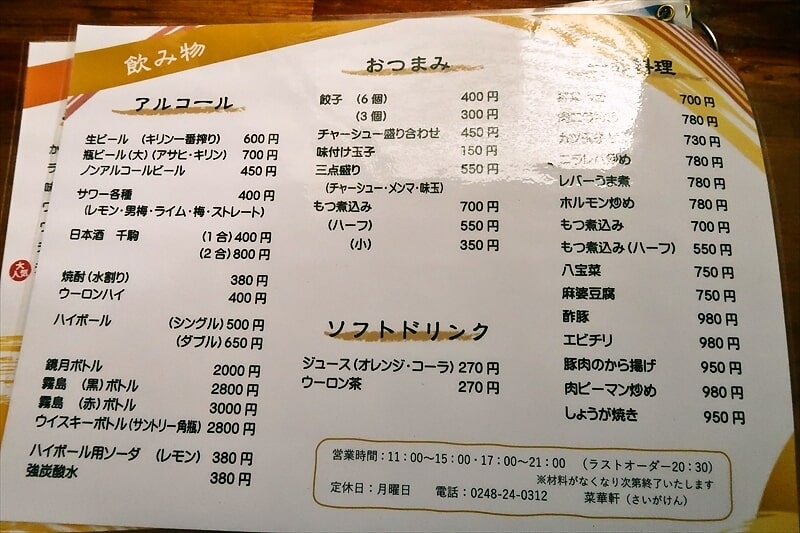 飲み物
アルコール
生ビール (キリン一番搾り) 600円
瓶ビール(大)(アサヒ・キリン) 700円
ノンアルコールビール 450円
サワー各種 400円
(レモン・男梅・ライム・梅・ストレート)
日本酒 千駒 (1合)400円
(2合)800円
焼酎(水割り) 380円
ウーロンハイ 400円
ハイボール (シングル)500円
(ダブル)650円
鏡月ボトル 2000円
霧島 (黒)ボトル 2800円
霧島 (赤)ボトル 3000円
ウイスキーボトル(サントリー角瓶)2800円
ハイボール用ソーダ (レモン) 380円
強炭酸水 380円
おつまみ
餃子 (6個) 400円
(3個) 300円
チャーシュー盛り合わせ 450円
味付け玉子 150円
三点盛り 550円
(チャーシュー・メンマ・味玉)
もつ煮込み 700円
(ハーフ) 550円
(小) 350円
ソフトドリンク
ジュース(オレンジ・コーラ)270円
ウーロン茶 270円
料理
700円
780円
730円
ニラレバ炒め 780円
レバーうま煮 780円
ホルモン炒め 780円
もつ煮込み 700円
もつ煮込み(ハーフ) 550円
八宝菜 750円
麻婆豆腐 750円
酢豚 980円
エビチリ 980円
豚肉のから揚げ 950円
肉ピーマン炒め 980円
しょうが焼き 950円
営業時間:11:00〜15:00・17:00〜21:00 (ラストオーダー20:30)
※材料がなくなり次第終了いたします
定休日:月曜日 電話:0248-24-0312 菜華軒(さいがけん)
大人気